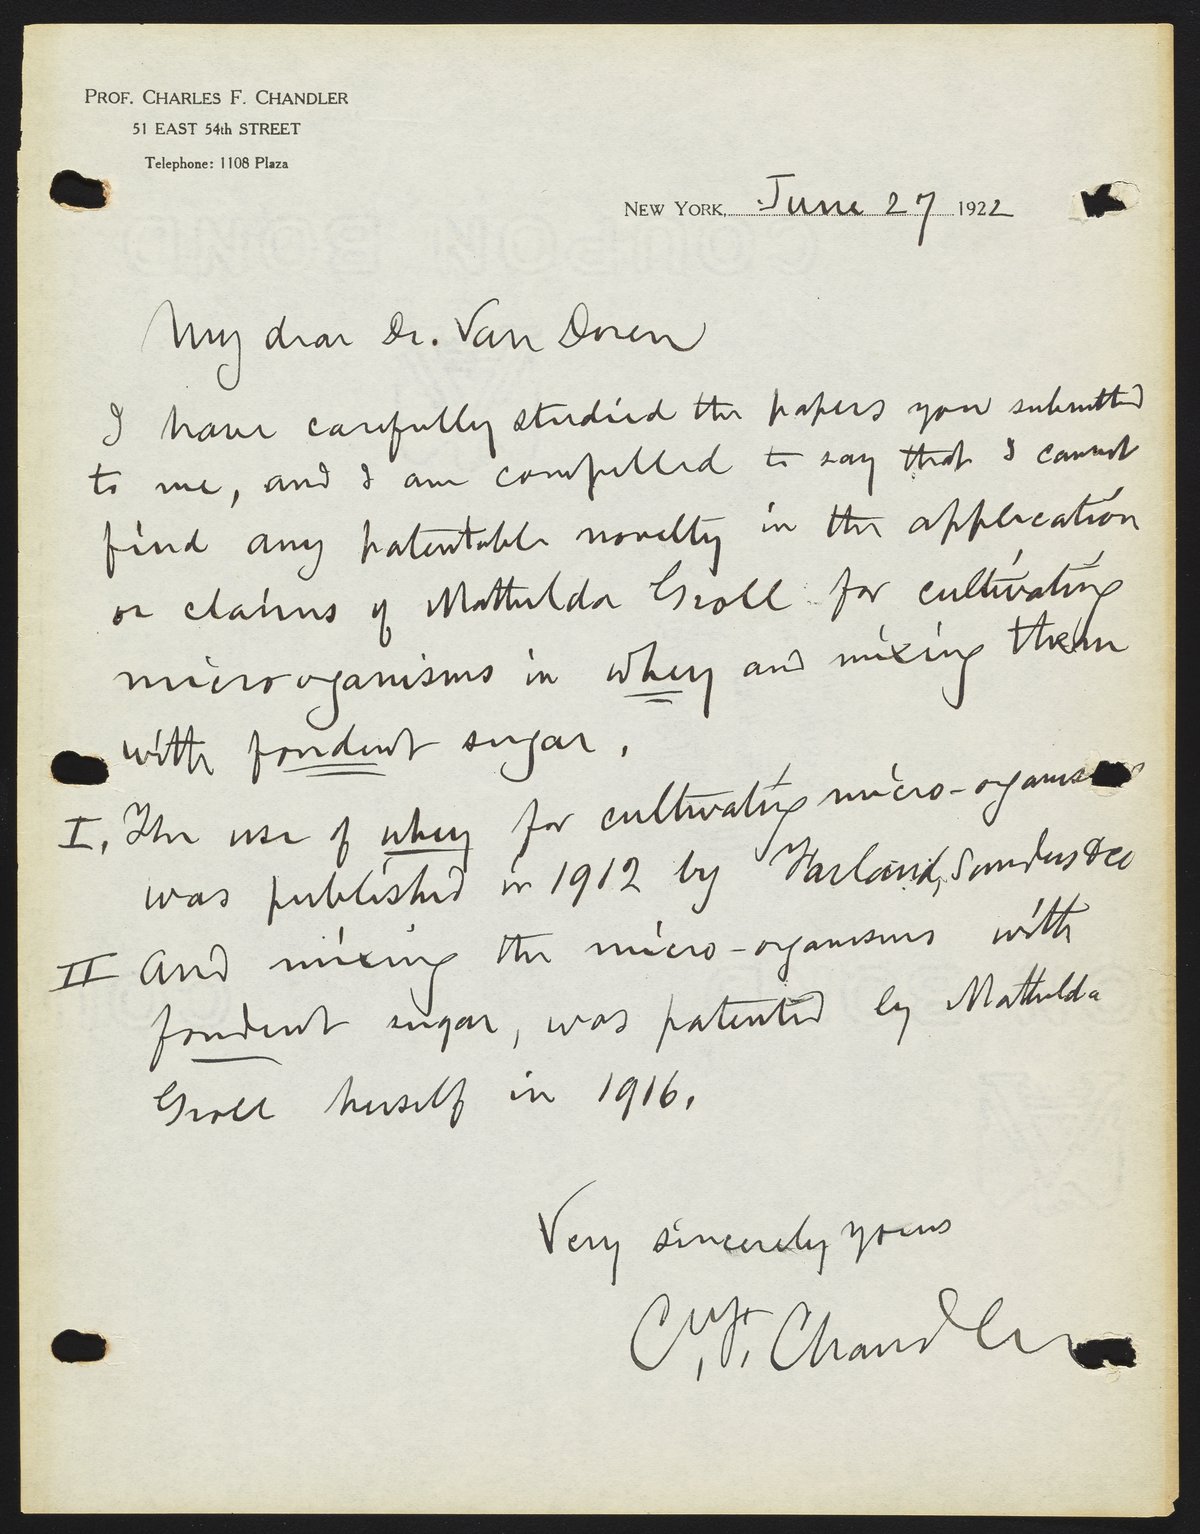 PROF. CHARLES F. CHANDLER
51 EAST 54th STREET
Telephone: 1108 Plaza
NEW YORK, June 27 1922
My dear Dr. Van Doren
I have carefully studied the papers you submitted
to me, and I am compelled to say that I cannot
find any patentable novelty in the application
or claims of Mathilda Groll for cultivating
microorganisms in whey and mixing them
with fondent sugar.
I. The use of whey for cultivating micro-organisms
was published in 1912 by Harland, Sanders & Co
II And mixing the micro-organisms with
fondent sugar, was patented by Mathilda
Groll herself in 1916.
Very sincerely yours
C. F. Chandler
COUPON BOND